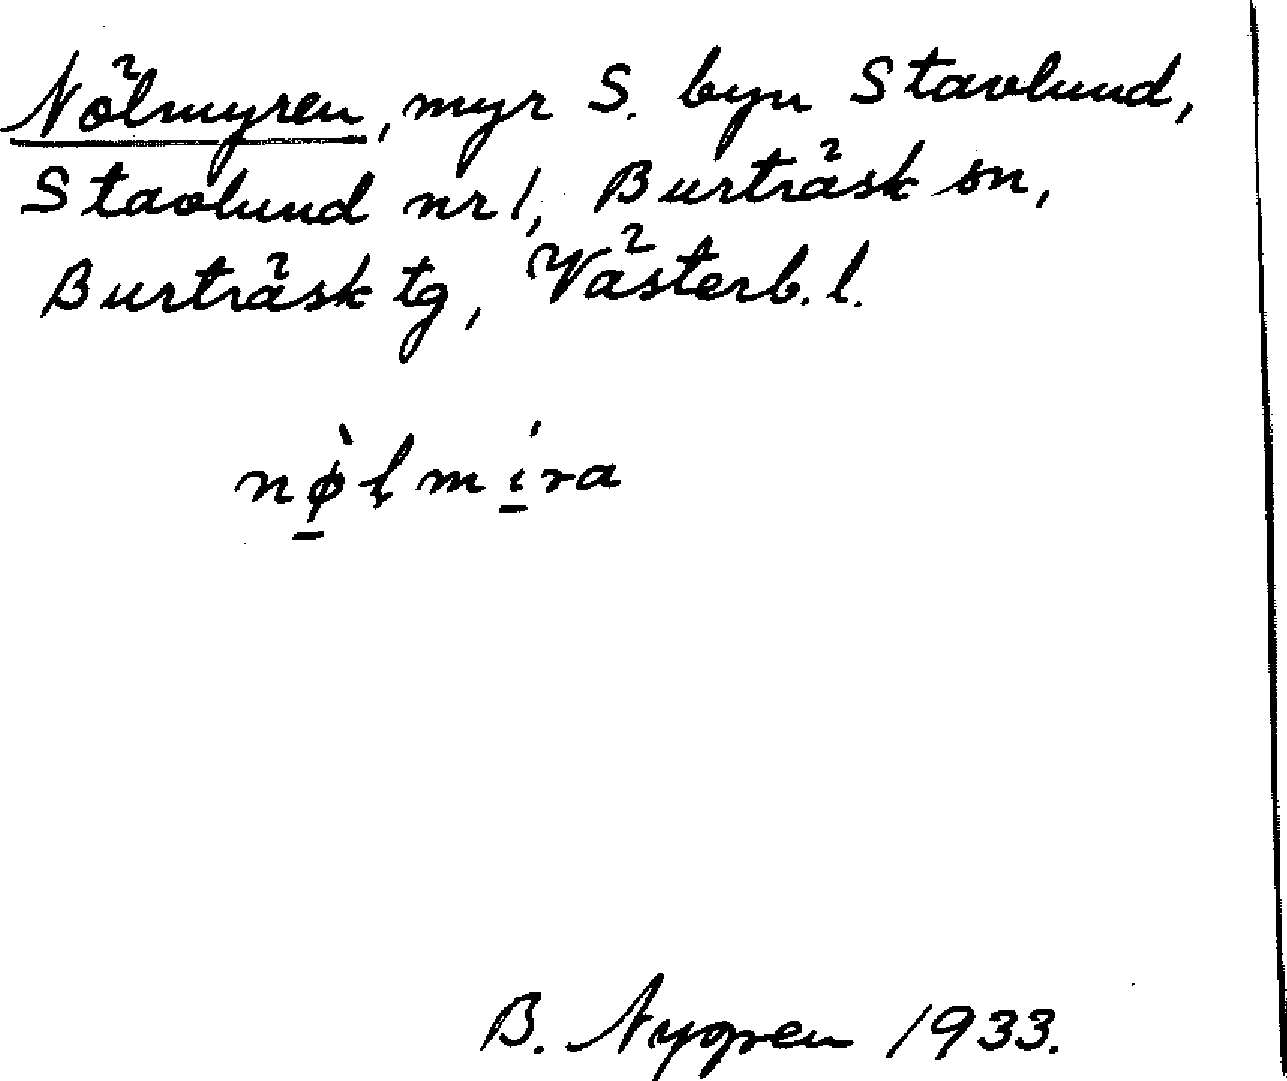 Nölmyren, myr S. byn Stavlund,
Stavlund nr 1, Burträsk sn,
Burträsk tg, Västerb. l.
nø̠̀ɫmí̠ra
B. Nygren 1933.